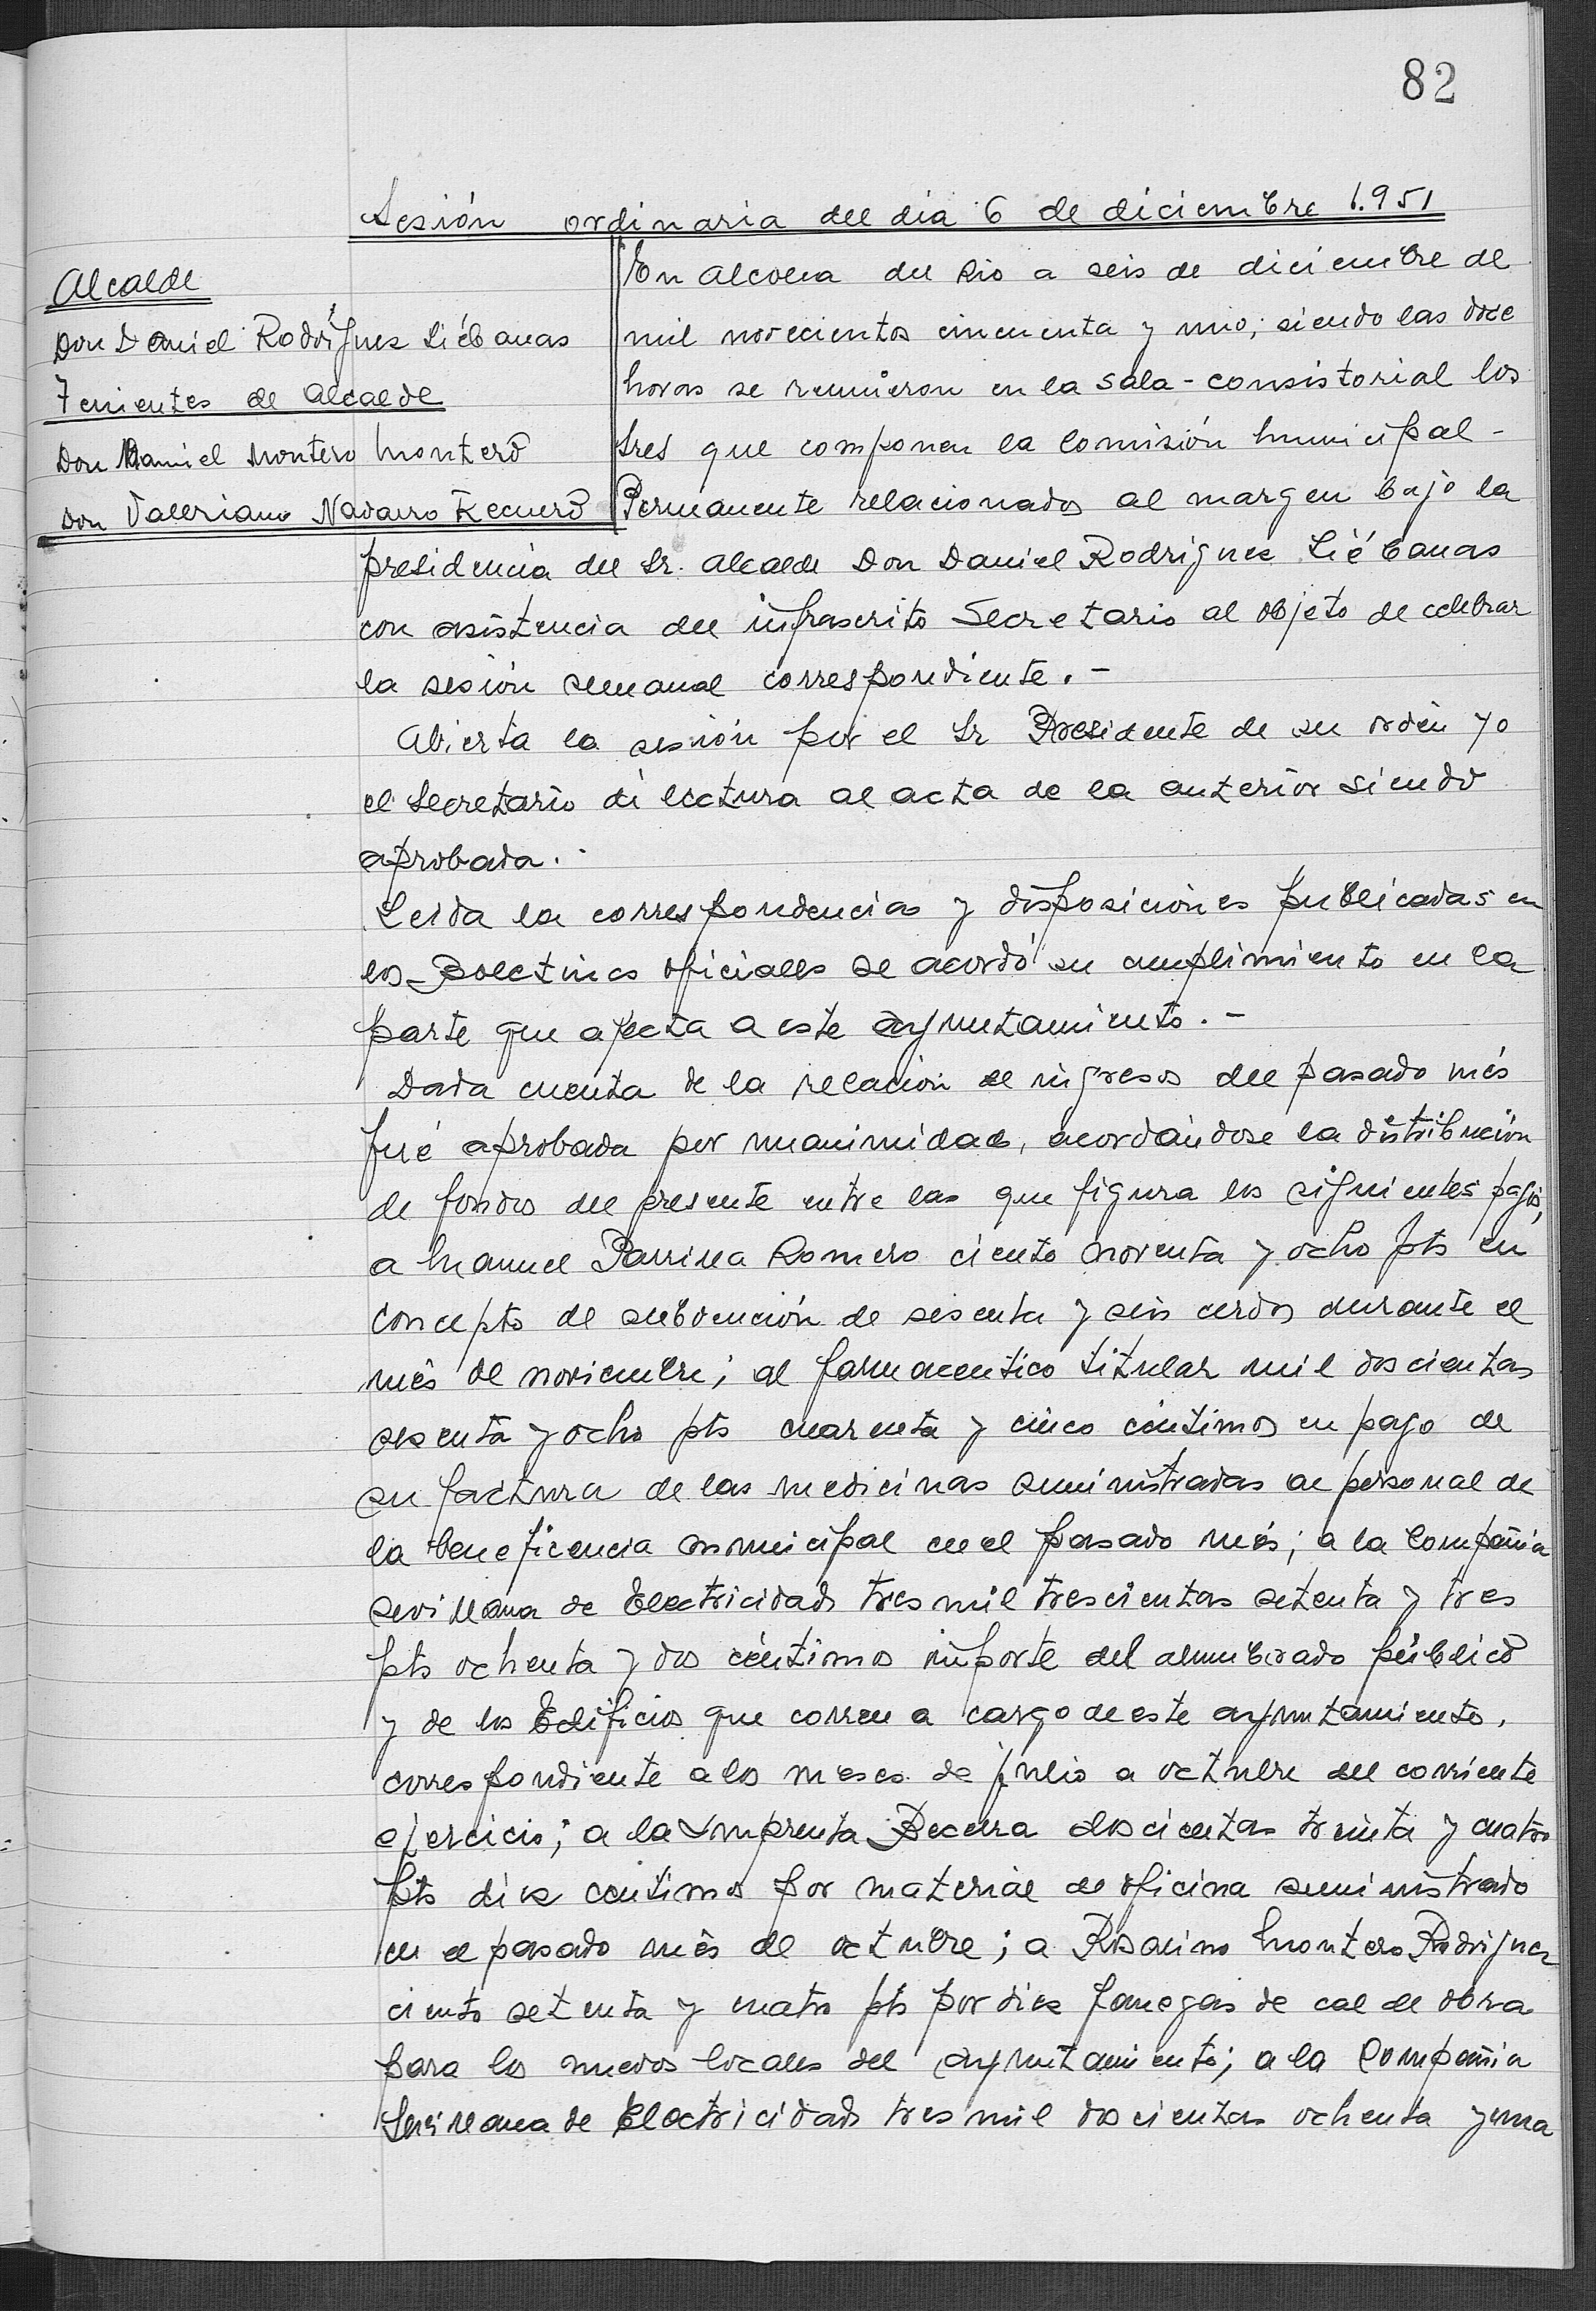 82
Sesión ordinaria del dia 6 de diciembre 1.951
Alcalde
Don Daniel Rodríguez Liébanas
Tenientes de Alcalde
Don Manuel Montero Montero
Don Valeriano Navarro Recuero
En Alcolea del Rio a seis de diciembre de
mil novecientos cincuenta y uno; siendo las doce
horas se reunieron en la sala-consistorial los
Sres que componen la Comisión Municipal-
Permanente relacionados al margen bajo la
presidencia del Sr. Alcalde Don Daniel Rodriguez Liébanas
con asistencia del infrascrito Secretario al objeto de celebrar
la sesión semanal correspondiente.-
Abierta la sesión por el Sr Presidente de su orden yo
el Secretario di lectura al acta de la anterior siendo
aprobada.-
Leida la correspondencia y disposiciones publicadas en
los Boletines oficiales se acordó su cumplimiento en la
parte que afecta a este Ayuntamiento.-
Dada cuenta de la relación de ingresos del pasado més
fué aprobada por unanimidad, acordándose la distribución
de fondos del presente entre las que figura los siguientes pagos,
a Manuel Parrilla Romero ciento noventa y ocho pts en
concepto de subvención de sesenta y seis cerdos durante el
més de noviembre; al farmaceutico titular mil doscientas
sesenta y ocho pts cuarenta y cinco céntimos en pago de
su factura de las medicinas suministradas al personal de
la beneficencia municipal en el pasado més; a la Compañia
Sevillana de Electricidad tres mil trescientas setenta y tres
pts ochenta y dos céntimos importe del alumbrado público
y de los Edificios que corren a cargo de este Ayuntamiento,
correspondiente a los meses de julio a octubre del corriente
ejercicio; a la Imprenta Becerra doscientas treinta y cuatro
pts diez centimos por material de oficina suministrado
en el pasado més de octubre; a Rosalino Montero Rodriguez
ciento setenta y cuatro pts por diez fanegas de cal de obra
para los nuevos locales del Ayuntamiento; a la Compañia
Sevillana de Electricidad tres mil doscientas ochenta y una